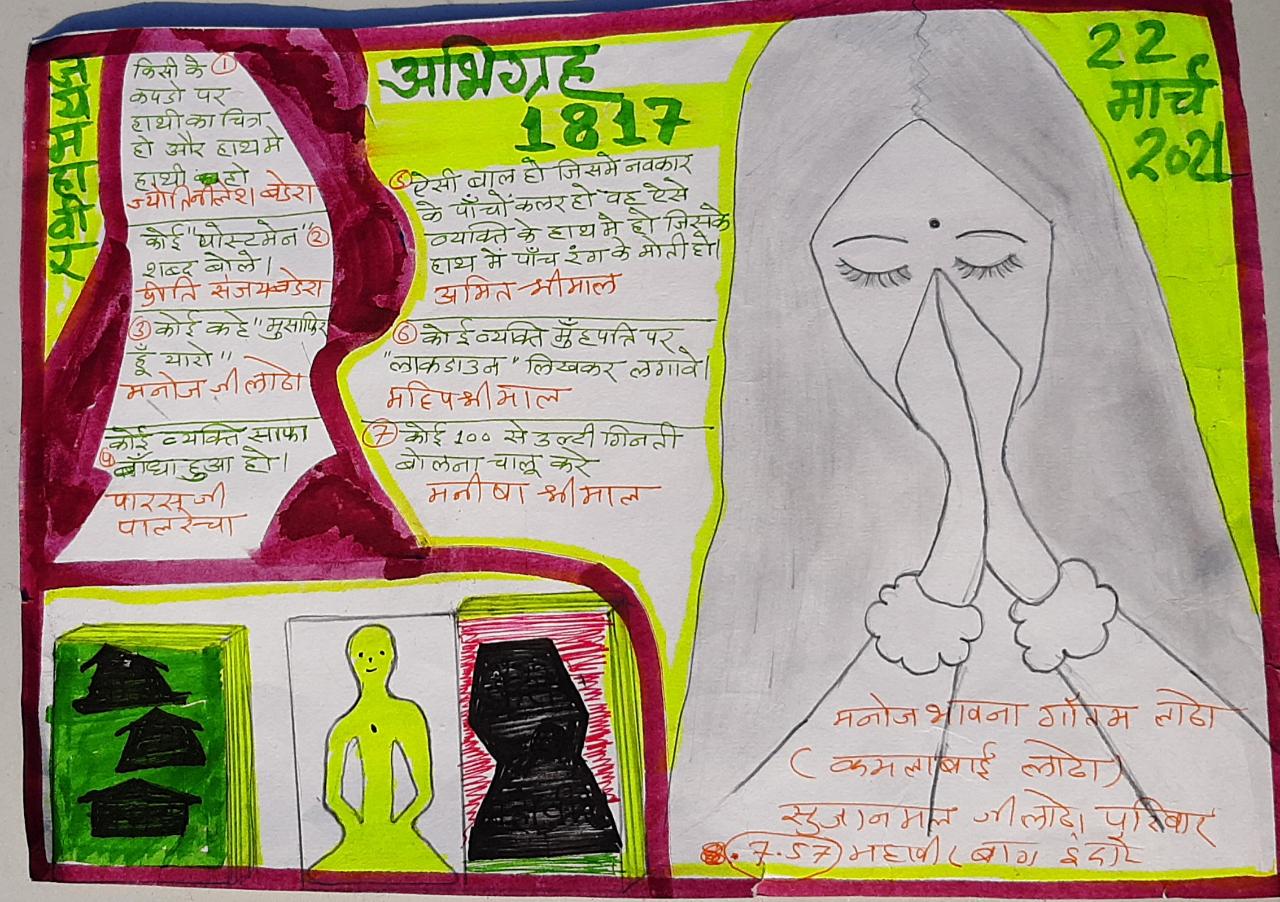 जय महावीर
किसी के ①
कपडो पर
हाथी का चित्र
हो और हाथ मे
हाथी हो
ज्योति नीलेश बेडेरा
कोई "पोस्टमेन" ②
शब्द बोले।
प्रीति संजय बेडेरा
③ कोई कहे "मुसाफिर
हूँ यारो"
मनोज जी लोढा
कोई व्यक्ति साफा
④ बाँधा हुआ हो।
पारस जी
पालरेचा
अभिग्रह
1817
⑤ ऐसी बाल हो जिसमे नवकार
के पाँचों कलर हो वह ऐसे
व्यक्ति के हाथ मे हो जिसके
हाथ में पाँच रंग के मोती हो।
अमित श्रीमाल
⑥ कोई व्यक्ति मुँहपति पर
"लाकडाउन" लिखकर लगावे।
महिप श्रीमाल
⑦ कोई 100 से उल्टी गिनती
बोलना चालू करे
मनीषा श्रीमाल
22
मार्च
2021
मनोज भावना गौतम लोढा
(कमलाबाई लोढा)
सुजानमल जी लोढा परिवार
7.57 महावीर बाग इंदौर